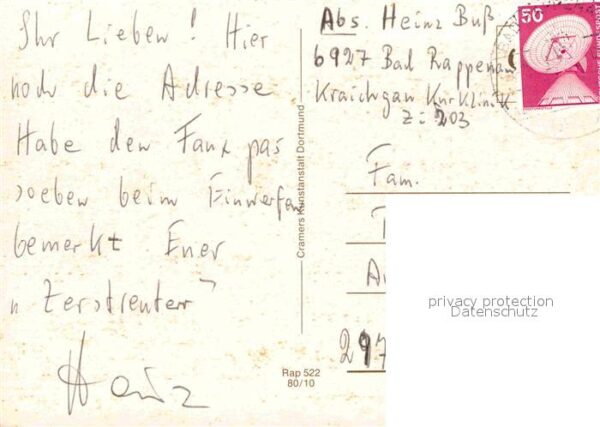 Ihr Lieben! Hier
noch die Adresse
Habe den Faux pas
soeben beim Einwerfen
bemerkt Euer
„Zerstreuter"
Heinz
Abs. Heinz Buß
6927 Bad Rappenau
Kraichgau Kurklinik
Z: 203
50
Fam.
297
Cramers Kunstanstalt Dortmund
Rap 522
80/10
privacy protection
Datenschutz